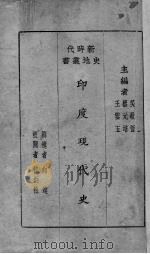 新時代
史地叢書
主編者
吳敬恆
蔡元培
王雲五
印度現代史
校閱者